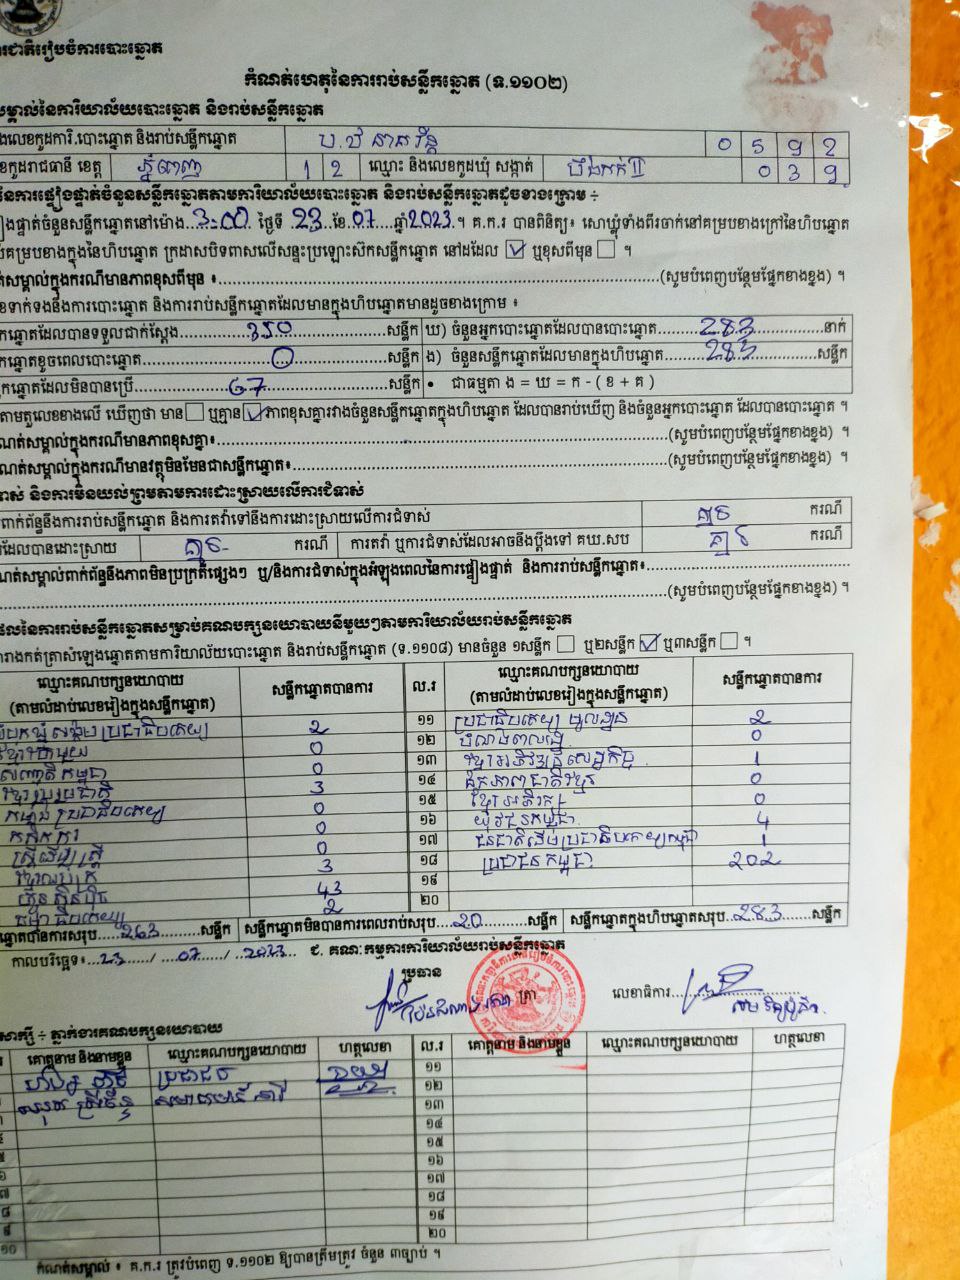 ារជាតិរៀបចំការបោះឆ្នោត
កំណត់ហេតុនៃការរាប់សន្លឹកឆ្នោត (ទ.១១០២)
សម្គាល់នៃការិយាល័យបោះឆ្នោត និងរាប់សន្លឹកឆ្នោត
ងលេខកូដការិ.បោះឆ្នោត និងរាប់សន្លឹកឆ្នោត 0 5 9 2
ខកូដរាជធានី ខេត្ត ភ្នំពេញ 1 2 ឈ្មោះ និងលេខកូដឃុំ សង្កាត់ បឹងកក់II 0 3 9
នៃការផ្ទៀងផ្ទាត់ចំនួនសន្លឹកឆ្នោតតាមការិយាល័យបោះឆ្នោត និងរាប់សន្លឹកឆ្នោតដូចខាងក្រោម ÷
ៀងផ្ទាត់ចំនួនសន្លឹកឆ្នោតនៅម៉ោង...3:00 ថ្ងៃទី .23...ខែ.07.....ឆ្នាំ2023.។ គ.ក.រ បានពិនិត្យ៖ សោឃ្លុំទាំងពីរចាក់នៅគម្របខាងក្រៅនៃហិបឆ្នោត
គម្របខាងក្នុងនៃហិបឆ្នោត ក្រដាសបិទពាសលើសន្ទះប្រឡោះស៊កសន្លឹកឆ្នោត នៅដដែល ☑ ឬខុសពីមុន ☐ ។
ត់សម្គាល់ក្នុងករណីមានភាពខុសពីមុន ៖......(សូមបំពេញបន្ថែមផ្នែកខាងខ្នង) ។
ខទាក់ទងនឹងការបោះឆ្នោត និងការរាប់សន្លឹកឆ្នោតដែលមានក្នុងហិបឆ្នោតមានដូចខាងក្រោម ៖
កឆ្នោតដែលបានទទួលជាក់ស្តែង......350......សន្លឹក ឃ) ចំនួនអ្នកបោះឆ្នោតដែលបានបោះឆ្នោត......283......នាក់
កឆ្នោតខូចពេលបោះឆ្នោត......0......សន្លឹក ង) ចំនួនសន្លឹកឆ្នោតដែលមានក្នុងហិបឆ្នោត......283......សន្លឹក
កឆ្នោតដែលមិនបានប្រើ......67......សន្លឹក • ជាធម្មតា ង = ឃ = ក - ( ខ + គ )
តាមតួលេខខាងលើ ឃើញថា មាន☐ ឬគ្មាន☑ភាពខុសគ្នារវាងចំនួនសន្លឹកឆ្នោតក្នុងហិបឆ្នោត ដែលបានរាប់ឃើញ និងចំនួនអ្នកបោះឆ្នោត ដែលបានបោះឆ្នោត ។
ណត់សម្គាល់ក្នុងករណីមានភាពខុសគ្នា៖......(សូមបំពេញបន្ថែមផ្នែកខាងខ្នង) ។
ណត់សម្គាល់ក្នុងករណីមានវត្ថុមិនមែនជាសន្លឹកឆ្នោត៖......(សូមបំពេញបន្ថែមផ្នែកខាងខ្នង) ។
ទាស់ និងការមិនយល់ព្រមតាមការដោះស្រាយលើការជំទាស់
ពាក់ព័ន្ធនឹងការរាប់សន្លឹកឆ្នោត និងការតវ៉ាទៅនឹងការដោះស្រាយលើការជំទាស់ គ្មាន ករណី
ដែលបានដោះស្រាយ គ្មាន ករណី ការតវ៉ា ឬការជំទាស់ដែលអាចនឹងប្តឹងទៅ គឃ.សប គ្មាន ករណី
ណត់សម្គាល់ពាក់ព័ន្ធនឹងភាពមិនប្រក្រតីផ្សេងៗ ឬ/និងការជំទាស់ក្នុងអំឡុងពេលនៃការផ្ទៀងផ្ទាត់ និងការរាប់សន្លឹកឆ្នោត៖......
......(សូមបំពេញបន្ថែមផ្នែកខាងខ្នង) ។
ផលនៃការរាប់សន្លឹកឆ្នោតសម្រាប់គណបក្សនយោបាយនីមួយៗតាមការិយាល័យរាប់សន្លឹកឆ្នោត
ារាងកត់ត្រាសំឡេងឆ្នោតតាមការិយាល័យបោះឆ្នោត និងរាប់សន្លឹកឆ្នោត (ទ.១១០៨) មានចំនួន ១សន្លឹក ☐ ឬ២សន្លឹក ☑ ឬ៣សន្លឹក ☐ ។
ឈ្មោះគណបក្សនយោបាយ សន្លឹកឆ្នោតបានការ ល.រ ឈ្មោះគណបក្សនយោបាយ សន្លឹកឆ្នោតបានការ
(តាមលំដាប់លេខរៀងក្នុងសន្លឹកឆ្នោត) (តាមលំដាប់លេខរៀងក្នុងសន្លឹកឆ្នោត)
ប្រជាធិបតេយ្យ 2 ១១ ប្រជាធិបតេយ្យ មូលដ្ឋាន 2
0 ១២ 0
កម្ពុជា 0 ១៣ ខ្មែរអភិវឌ្ឍន៍សេដ្ឋកិច្ច 1
ខ្មែររួបរួមជាតិ 3 ១៤ ឯកភាពជាតិខ្មែរ 0
កម្លាំងប្រជាធិបតេយ្យ 0 ១៥ ខ្មែរអភិរក្ស 0
កសិករ 0 ១៦ យុវជនកម្ពុជា 4
ស្ត្រីដើម្បីស្ត្រី 0 ១៧ ជនជាតិដើមប្រជាធិបតេយ្យកម្ពុជា 1
3 ១៨ ប្រជាជនកម្ពុជា 202
ហ៊្វុនស៊ិនប៉ិច 43 ១៩
ធម្មាធិបតេយ្យ 2 ២០
ឆ្នោតបានការសរុប...263......សន្លឹក សន្លឹកឆ្នោតមិនបានការពេលរាប់សរុប...20......សន្លឹក សន្លឹកឆ្នោតក្នុងហិបឆ្នោតសរុប.283......សន្លឹក
កាលបរិច្ឆេទ៖...23....../ ...07....../ ..2023... ជ. គណៈកម្មការការិយាល័យរាប់សន្លឹកឆ្នោត
ប្រធាន
ត្រា លេខាធិការ......
សាក្សី ÷ ភ្នាក់ងារគណបក្សនយោបាយ
គោត្តនាម និងនាមខ្លួន ឈ្មោះគណបក្សនយោបាយ ហត្ថលេខា ល.រ គោត្តនាម និងនាមខ្លួន ឈ្មោះគណបក្សនយោបាយ ហត្ថលេខា
ប្រជាជន ១១
១២
១៣
១៤
១៥
១៦
៧ ១៧
៨ ១៨
៩ ១៩
១០ ២០
កំណត់សម្គាល់ ៖ គ.ក.រ ត្រូវបំពេញ ទ.១១០២ ឱ្យបានត្រឹមត្រូវ ចំនួន ៣ច្បាប់ ។